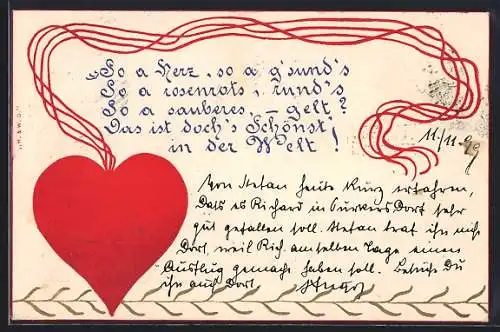 „So a Herz, so a g'sund's
So a rosenrots, rund's
So a sauberes, – gelt?
Das ist doch's Schönst'
in der Welt!
11/11. 99
Von Stefan heute kurz erfahren,
Dass es Richard in Purkersdorf sehr
gut gefallen soll. Stefan traf ihn nicht
Dort, weil Rich. am selben Tage einen
Ausflug gemacht haben soll. Besuche Du
ihn auch Dort.